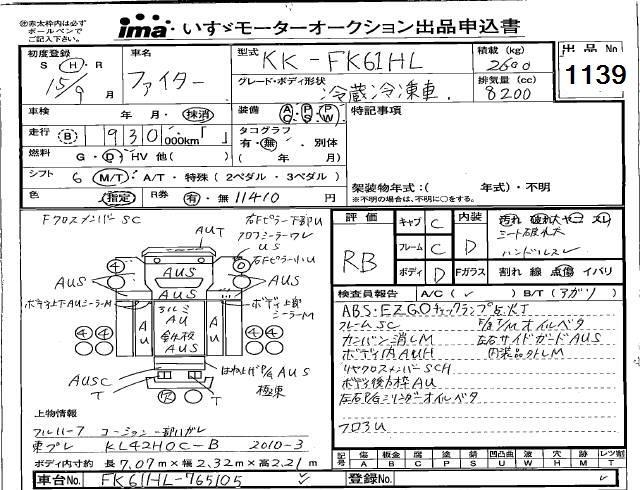 ㊟赤太枠内は必ず
ボールペンで
ご記入下さい。
ima いすゞモーターオークション出品申込書
初度登録
S (H)・R
15/9 月
車名
ファイター
型式
KK-FK61HL
積載 (kg)
2600
グレード・ボディ形状
冷蔵冷凍車
排気量 (cc)
8200
出品 No
1139
車検 年 月・(抹消)
装備 AC PS PW
特記事項
走行 (B) 930,000km「 」
タコグラフ
有・(無)・別体
( 年 月)
燃料 G・(D)・HV 他( )
シフト 6 (M/T)・A/T・特殊(2ペダル・3ペダル)
色 (指定) R券 (有)・無 11410 円
架装物年式:( 年式)・不明
※不明の場合は、不明に○をする。
Fクロスメンバー SC
AUT
右Fピラー下部U
フロアミラーワレ
US
右Fピラー小U
④
AUS
AUS
AUS
AUS
ボデー上下AUシーラーM
ボデー上部
シーラーM
Au
アルミ
AU
Au
④④
④④
はね上げP/G AUS
極東
AUSC
T
T
上物情報
フルハーフ コーション一部ハガレ
東プレ KL42HOC-B 2010-3
ボディ内寸約 長7.07m×幅2.32m×高2.21m
車台No. FK61HL-765105
登録No.
評価
RB
キャブ C
フレーム C
ボディ D
内装 D
Fガラス
汚れ 破れ大 ヤニ スレ
シート破れ大
ハンドルスレ
割れ 線 (点傷) イバリ
検査員報告 A/C( ✓ ) B/T(アガソ)
ABS・EZGOチェックランプ点灯
フレームSC
F/g T/M オイルベタ
カンバン消しM
左右サイドガードAUS
ボディ内AUH
内装品外しM
リヤクロスメンバーSCH
ボディ後方枠AU
左右P/Gシリンダーオイルベタ
フロアU
記号 傷 A 板金 B 腐 C 塗 P 錆 S 凹凸曲 U 波 W 穴 H 跡 M レツ割 T